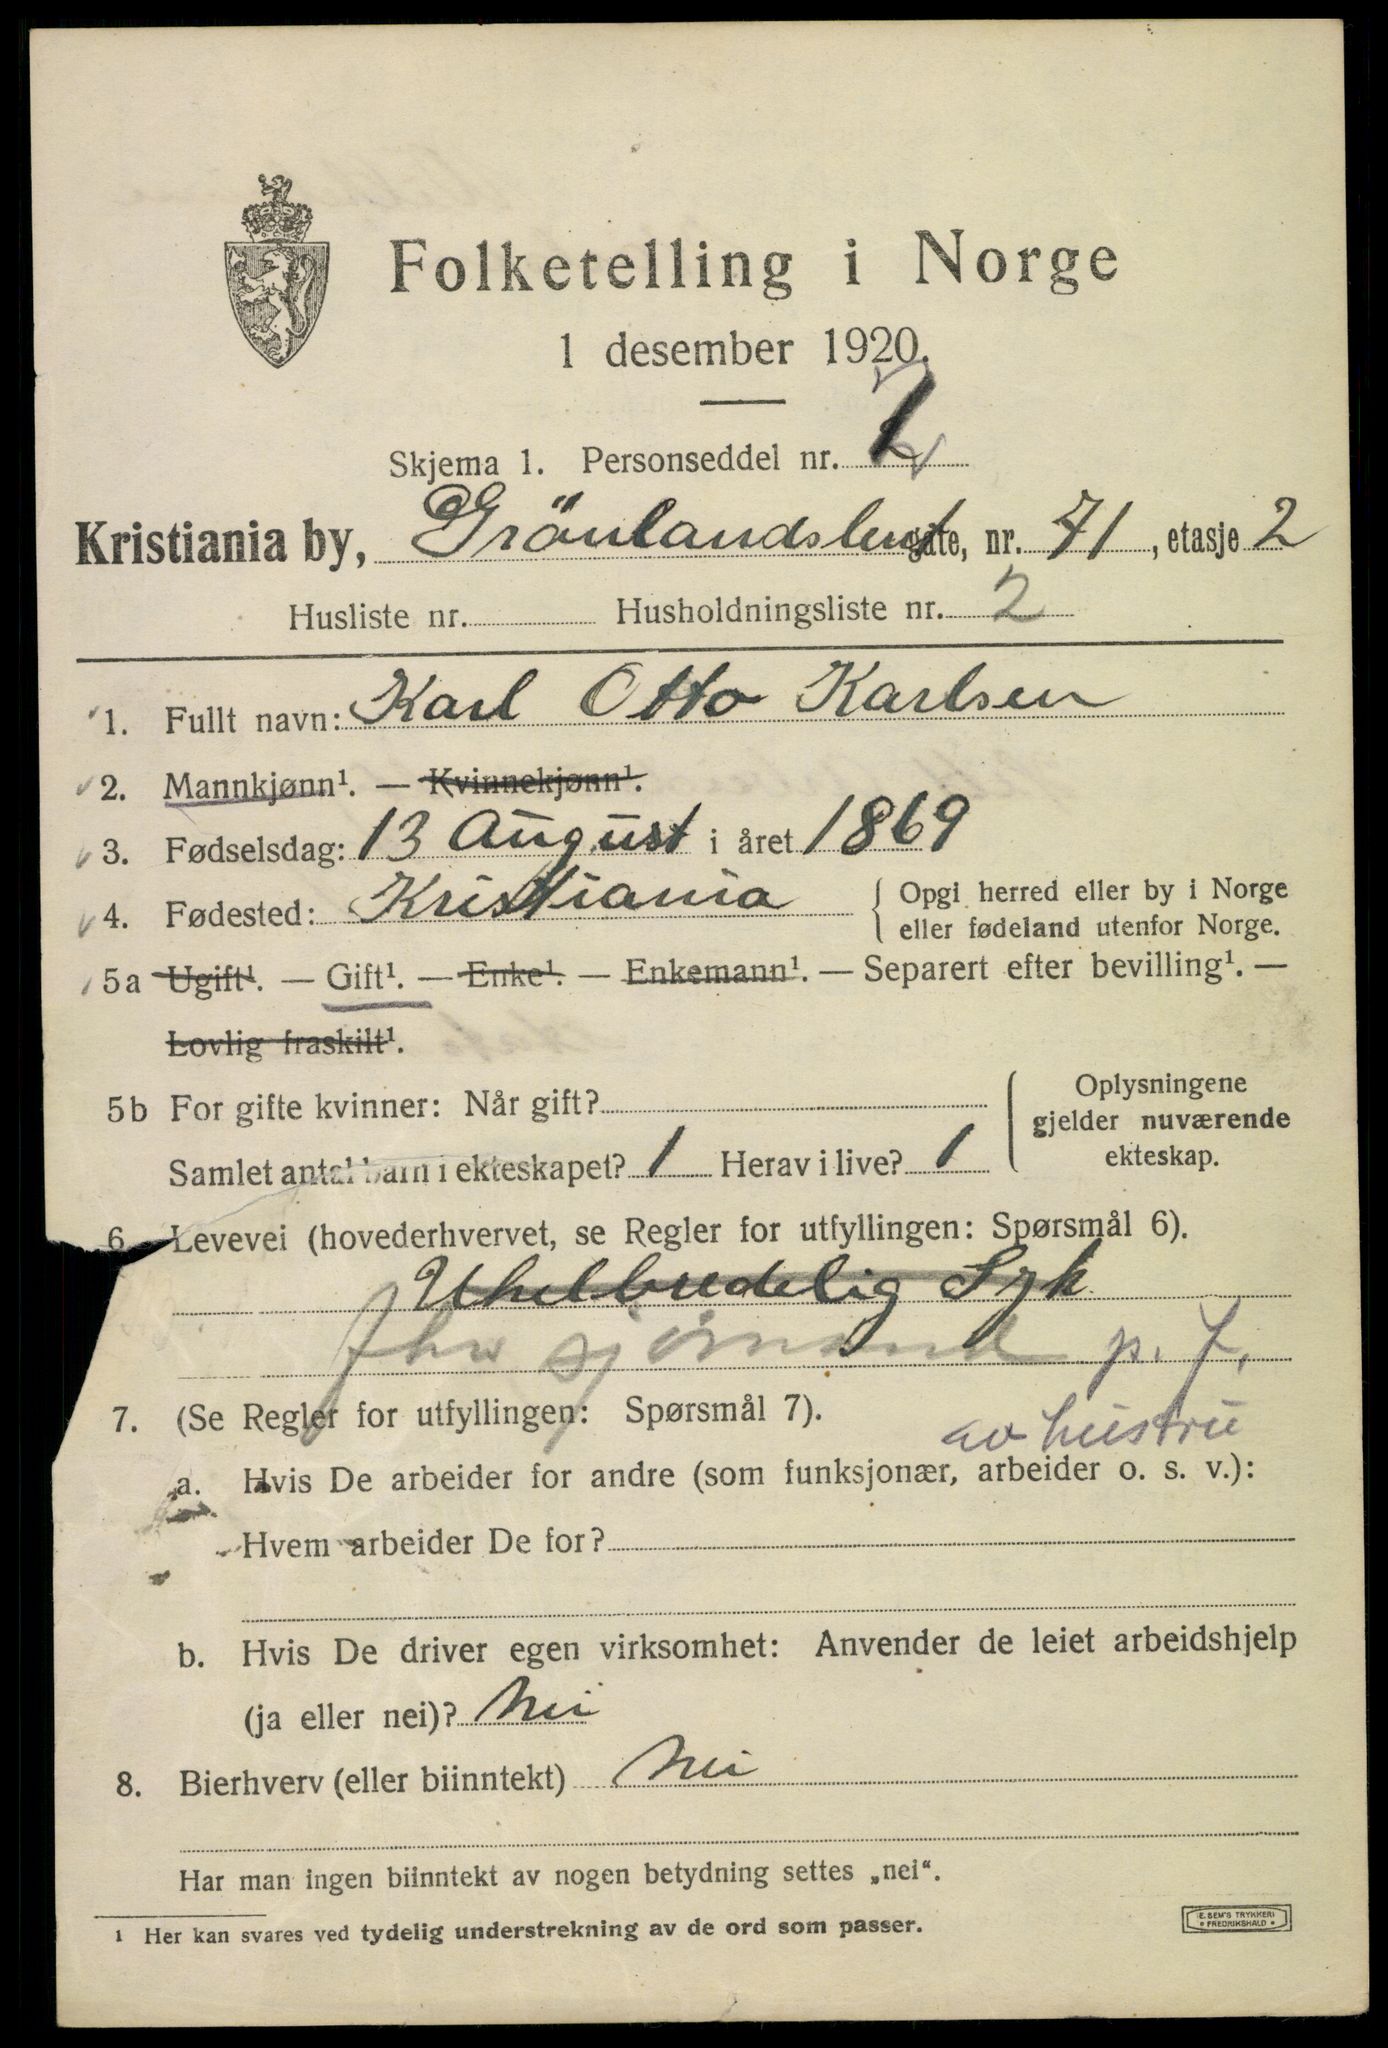 Folketelling i Norge
1 desember 1920.
Skjema 1. Personseddel nr. 2
Kristiania by, Grönlandsleret gate, nr. 71, etasje 2
Husliste nr. Husholdningsliste nr. 2
1. Fullt navn: Karl Otto Karlsen
2. Mannkjønn¹. — Kvinnekjønn¹.
3. Fødselsdag: 13 August i året 1869
4. Fødested: Kristiania { Opgi herred eller by i Norge
eller fødeland utenfor Norge.
5a Ugift¹. — Gift¹. — Enke¹. — Enkemann¹. — Separert efter bevilling¹. —
Lovlig fraskilt¹.
5b For gifte kvinner: Når gift? Oplysningene
gjelder nuværende
Samlet antal barn i ekteskapet? 1 Herav i live? 1 ekteskap.
6. Levevei (hovederhvervet, se Regler for utfyllingen: Spørsmål 6).
Uhelbredelig Syk
sjømand p. f.
7. (Se Regler for utfyllingen: Spørsmål 7).
av hustru
a. Hvis De arbeider for andre (som funksjonær, arbeider o. s. v.):
Hvem arbeider De for?
b. Hvis De driver egen virksomhet: Anvender de leiet arbeidshjelp
(ja eller nei)? Nei
8. Bierhverv (eller biinntekt) Nei
Har man ingen biinntekt av nogen betydning settes „nei“.
¹ Her kan svares ved tydelig understrekning av de ord som passer.
E. SEM'S TRYKKERI
FREDRIKSHALD